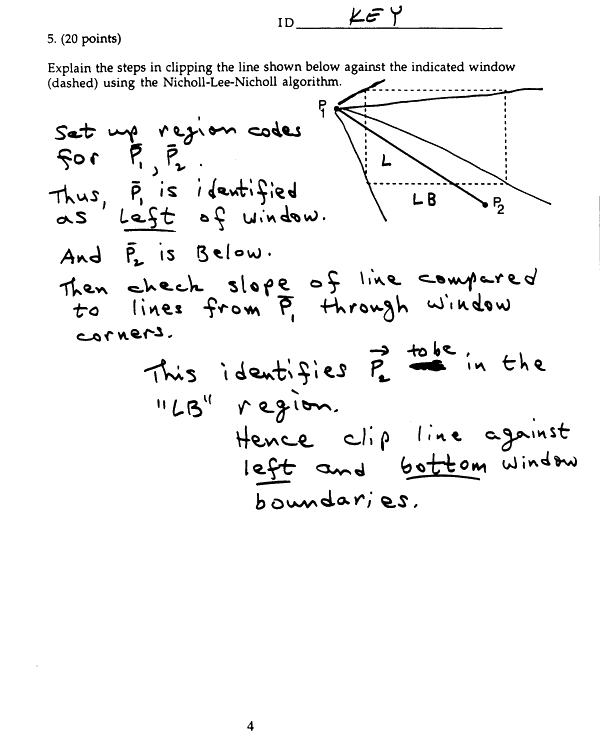 ID KEY
5. (20 points)
Explain the steps in clipping the line shown below against the indicated window
(dashed) using the Nicholl-Lee-Nicholl algorithm.
P1
L
LB
P2
Set up region codes
for P̄1, P̄2.
Thus, P̄1 is identified
as Left of window.
And P̄2 is Below.
Then check slope of line compared
to lines from P̄1 through window
corners.
This identifies P⃗2 to be in the
"LB" region.
Hence clip line against
left and bottom window
boundaries.
4